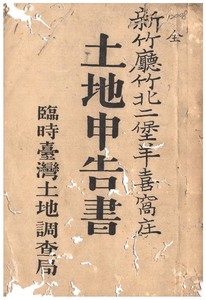 全
新竹廳竹北二堡羊喜窩庄
土地申告書
臨時臺灣土地調查局